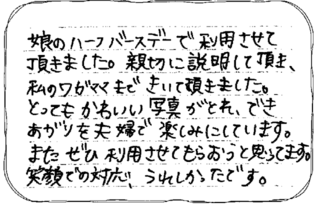 娘のハーフバースデーで利用させて
頂きました。親切に説明して頂き、
私のワガママもきいて頂きました。
とってもかわいい写真がとれ、でき
あがりを夫婦で楽しみにしています。
またぜひ利用させてもらおうと思ってます。
笑顔での対応、うれしかったです。